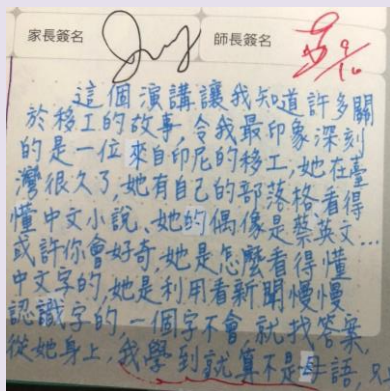 家長簽名 師長簽名 9/10
這個演講讓我知道許多關
於移工的故事,令我最印象深刻
的是一位來自印尼的移工,她在臺
灣很久了,她有自己的部落格看得
懂中文小說、她的偶像是蔡英文…
或許你會好奇,她是怎麼看得懂
中文字的,她是利用看新聞慢慢
認識字的,一個字不會就找答案,
從她身上,我學到就算不是母語,只